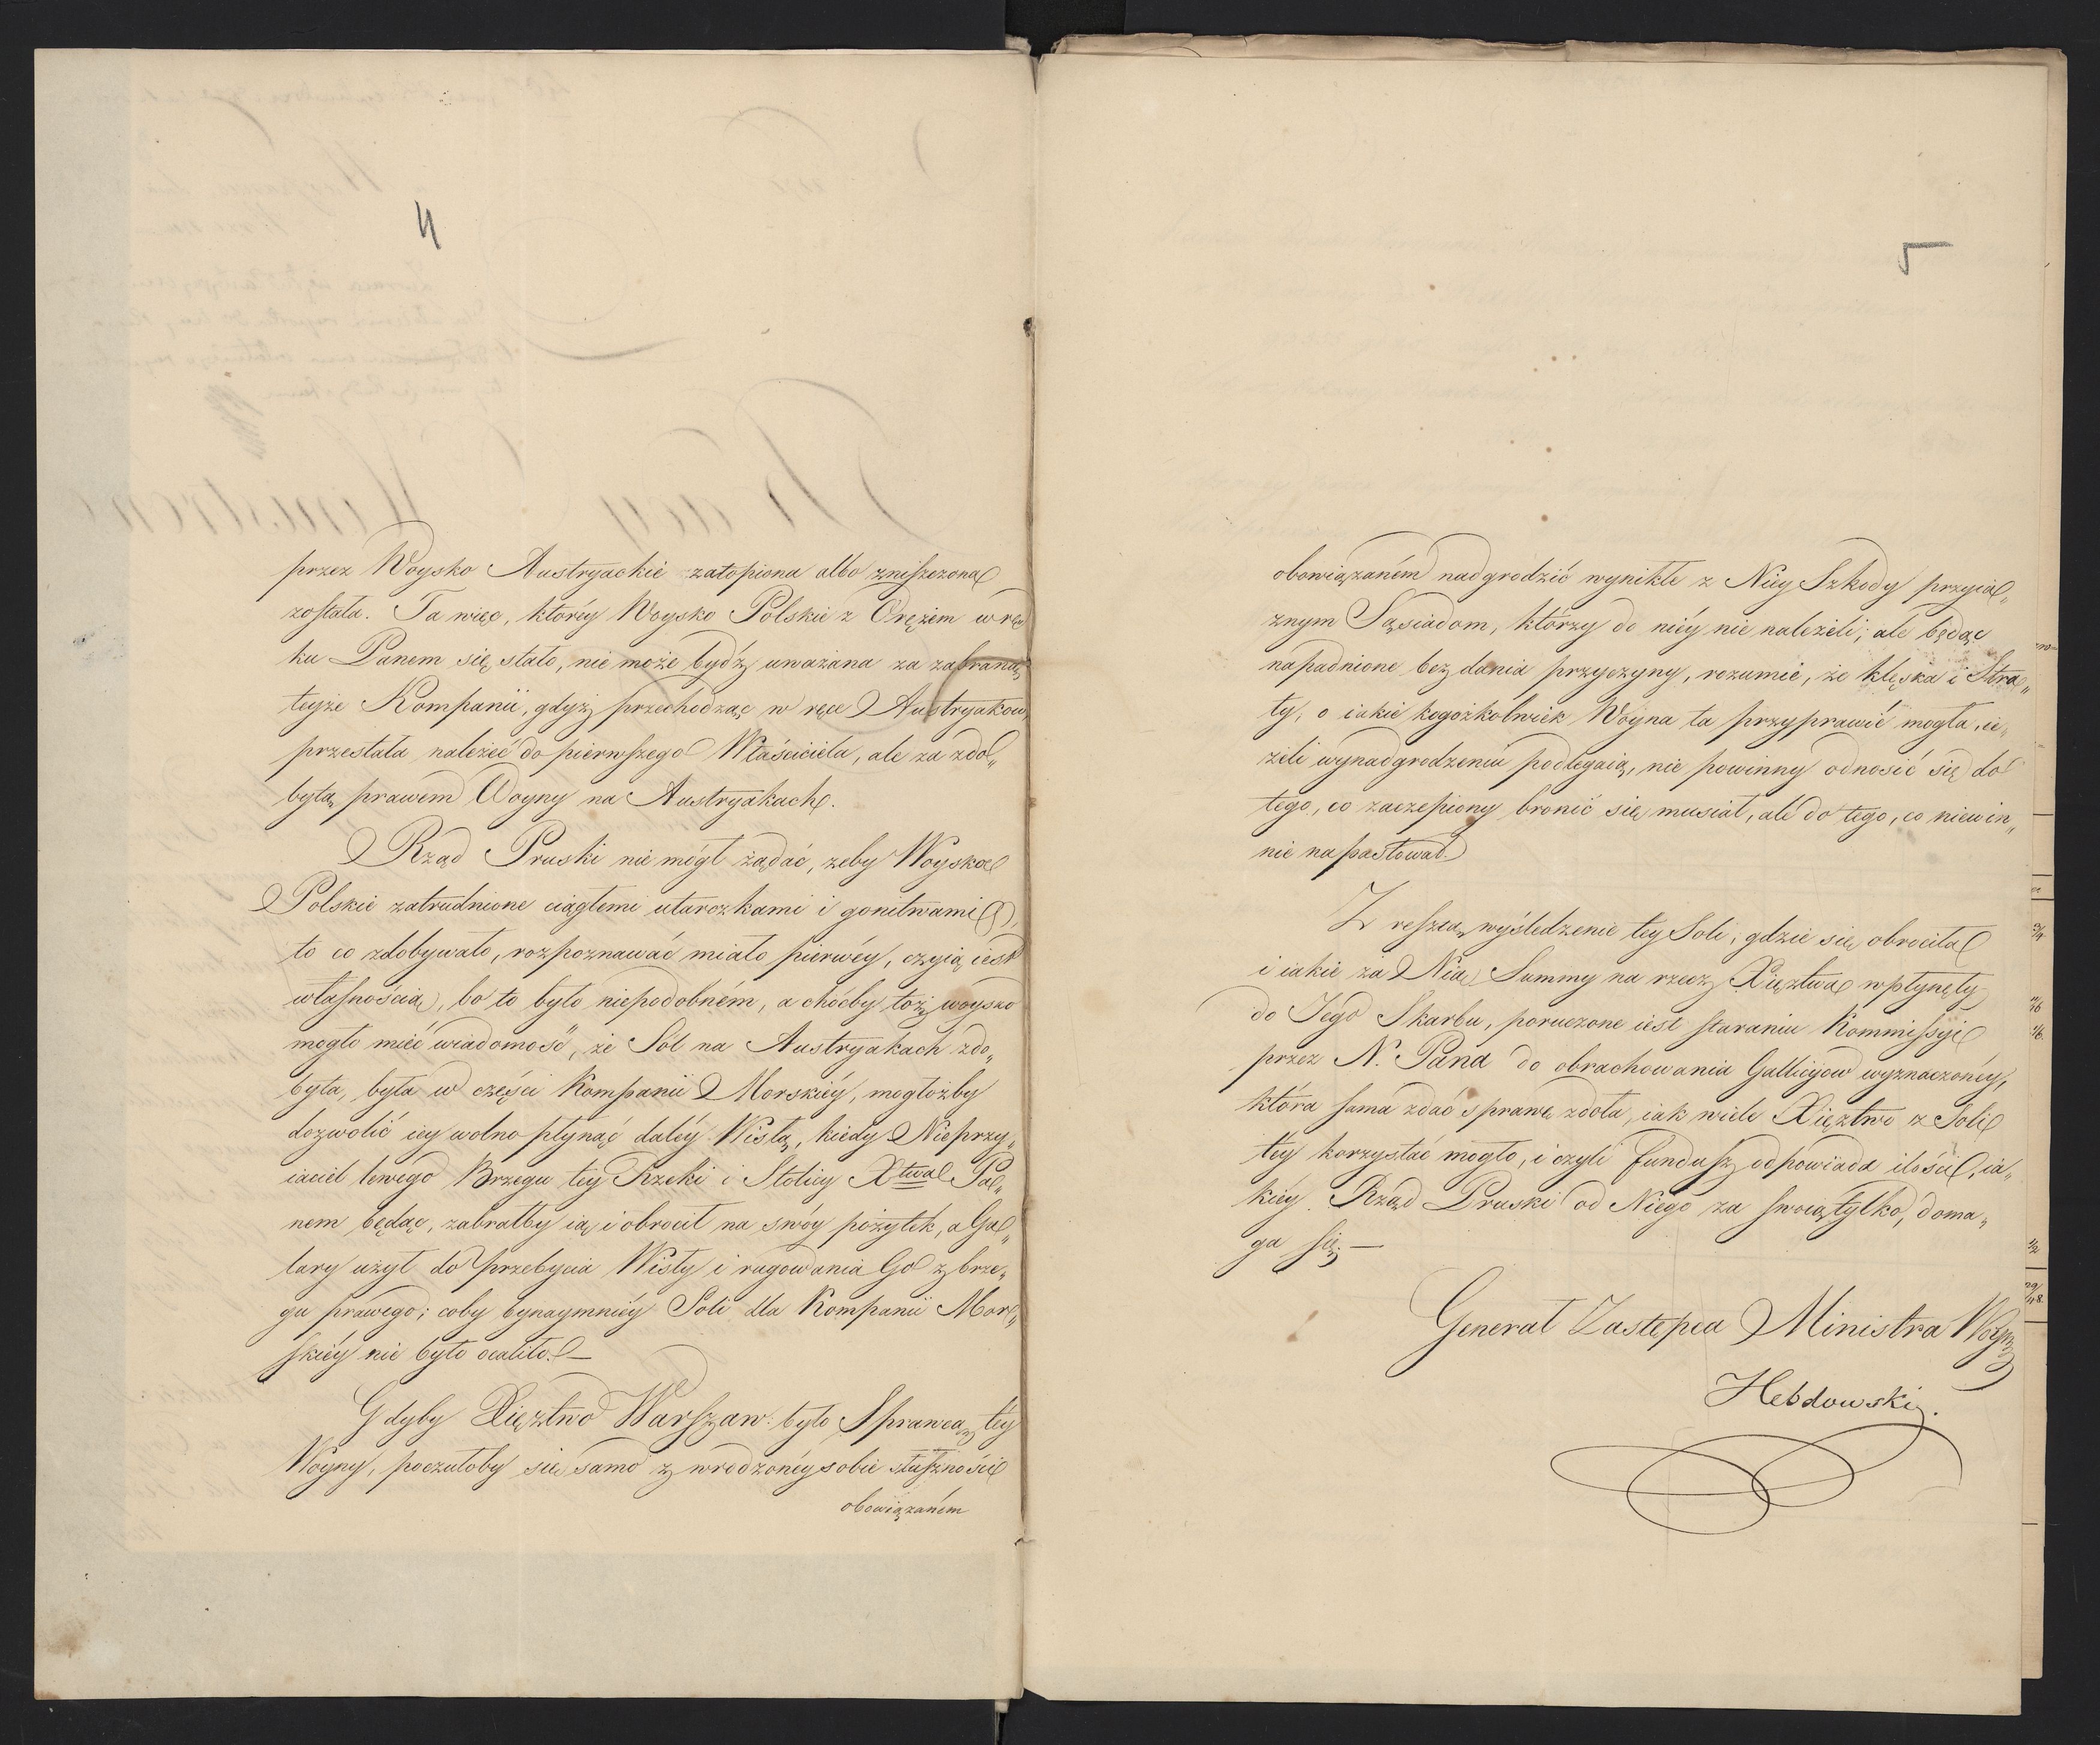 4
przez Woysko Austryackie zatopiona albo zniszczona
została. Ta więc, któréy Woysko Polskie z Orężem w rę
ku Panem się stało, nie może bydź uważana za zabraną
teyże Kompanii, gdyż przechodząc w ręce Austryakow,
przestała należeć do pierwszego Właściciela, ale za zdo„
bytą prawem Woyny na Austryakach.
Rząd Pruski nie mógł żądać, żeby Woysko
Polskie zatrudnione ciągłemi utarczkami i gonitwami,
to co zdobywało, rozpoznawać miało pierwéy, czyią iest
własnością, bo to było niepodobném, a choćby toż woysko
mogło mieć wiadomość, że Sól na Austryakach zdo„
byta, była w części Kompanii Morskiéy, mogłożby
dozwolić iey wolno płynąć daléy Wisłą, kiedy Nieprzy„
iaciel lewégo Brzegu téy Rzeki i Stolicy Xtwa Pa„
nem będąc, zabrałby ią i obrocił na swóy pożytek, a Ga„
lary użył do przebycia Wisły i rugowania Go z brze„
gu prawego; coby bynaymniéy Soli dla Kompanii Mor„
skiéy nie było ocaliło.—
Gdyby Xięztwo Warszaw: było Sprawcą téy
Woyny, poczułoby się samo z wrodzonéy sobie słuszności
obowiązaném
5
obowiązaném nadgrodzić wynikłe z Niey Szkody przyia„
znym Sąsiadom, którzy do niéy nie należeli; ale będąc
napadnione bez dania przyczyny, rozumie, że klęska i Stra„
ty, o iakie kogożkolwiek Woyna ta przyprawić mogła, ie„
żeli wynadgrodzeniu podlegaią, nie powinny odnosić się do
tego, co zaczepiony bronić się musiał, ale do tego, co niewin„
nie napastował.
Z resztą, wyśledzenie tey Soli, gdzie się obrociła
i iakie za Nią Summy na rzecz Xięztwa wpłynęły
do Jego Skarbu, poruczone iest staraniu Kommissyi
przez N. Pana do obrachowania Gallicyow wyznaczoney,
która sama zdać sprawę zdoła, iak wiele Xięztwo z Soli
téy korzystać mogło, i czyli fundusz odpowiada ilości, ia„
kiéy Rząd Pruski od Niego za swoią tylko, doma„
ga się.—
Generał Zastępca Ministra Woyny
Hebdowski.